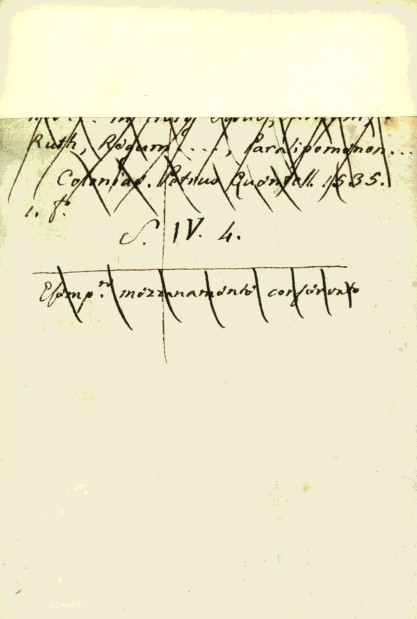 Ruth, Regum ..., Paralipomenon...
Coloniae. Petrus Quentell. 1535.
1. f.
S. IV. 4.
Esemp.re mezzanamente conservato